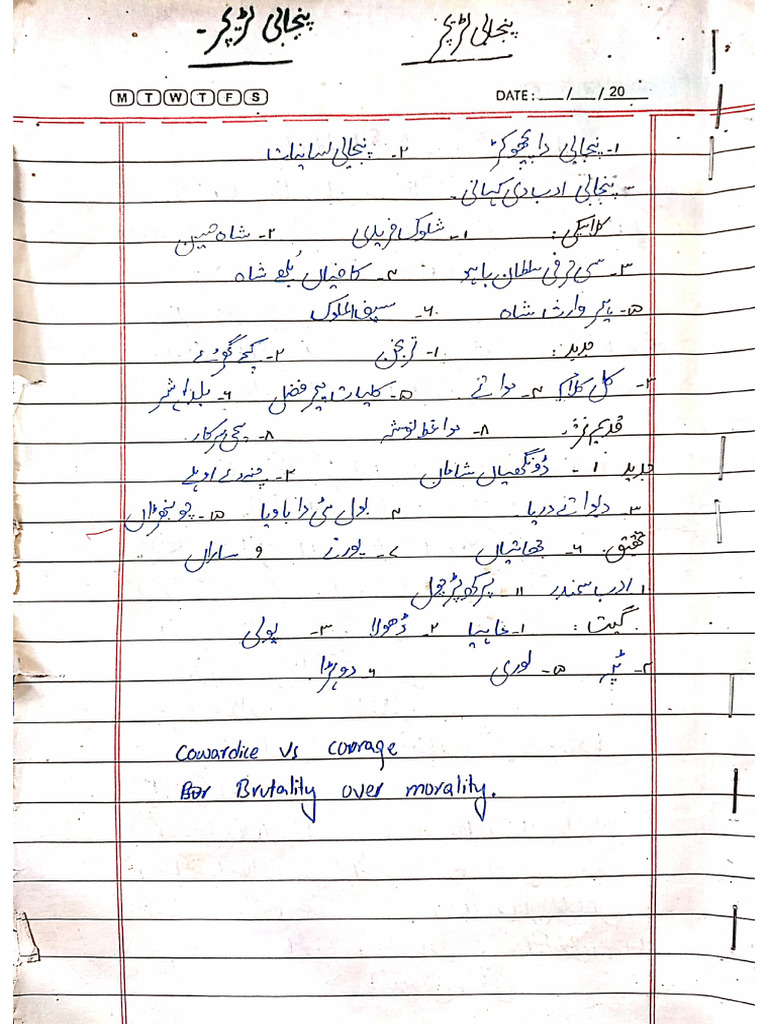 پنجابی لٹریچر پنجابی لٹریچر۔
M T W T F S DATE: __/__/20__
۱۔ پنجابی دا پچھوکڑ ۲۔ پنجابی لسانیات
- پنجابی ادب دی کہانی۔
کلاسیکی: ۱۔ شلوک فریدی ۲۔ شاہ حسین
۳۔ سی حرفی سلطان باہو ۴۔ کافیاں بلھے شاہ
۵۔ ہیر وارث شاہ ۶۔ سیف الملوک
جدید: ۱۔ ترنجن ۲۔ کچے گھڑے
۳۔ کل کلام ۴۔ کلیات پیر فضل ۵۔ ۶۔
قدیم نثر۔ ۸۔ مواعظ نوشہ ۸۔ سچی سرکار
جدید ۱۔ ڈونگھیاں شاماں ۲۔ اوہلے
۳۔ دیوا تے دریا۔ ۴ بول مٹی دا باویا ۵۔
تحقیق۔ ۶۔ جھاتیاں ۷۔ ۹ ساراں
ادب سمندر ۱۱۔ پرکھ پڑچول
گیت: ۱۔ ماہیا ۲۔ ڈھولا ۳۔ بولی
۴۔ ٹپہ ۵۔ لوری ۶ دوہڑا
Cowardice Vs courage
Brutality over morality.